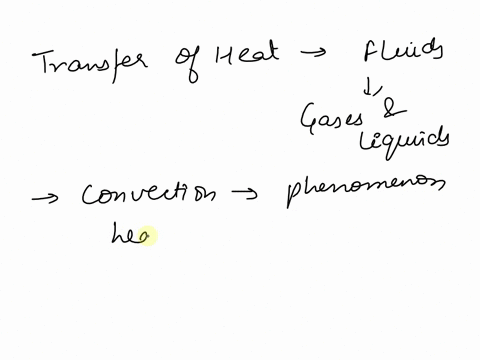 Transfer of Heat → Fluids
↓
Gases &
Liquids
→ Convection → phenomenon
hea